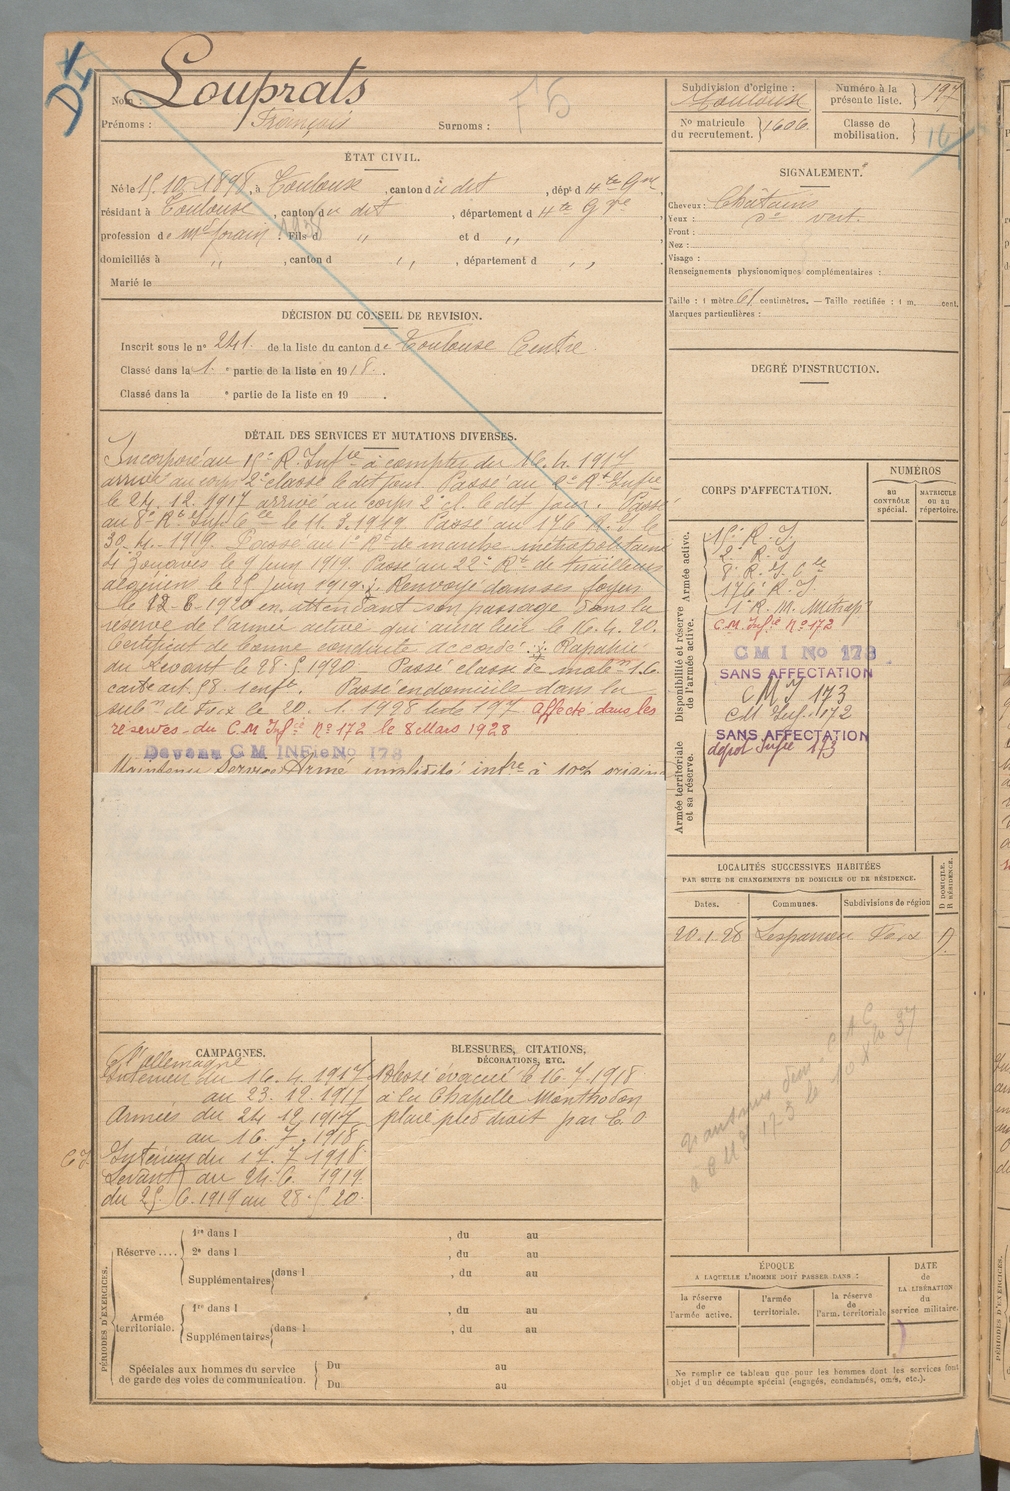 DI
Nom : Louprats
Prénoms : François Surnoms :
F5
Subdivision d'origine : Toulouse
Numéro à la présente liste. 197
No matricule du recrutement. 1606
Classe de mobilisation. 16
ÉTAT CIVIL.
Né le 15.10.1898, à Toulouse, canton du dit, dépt d Hte Gne,
résidant à Toulouse, canton du dit, département d Hte Gne,
profession de md forain : Fils d " et d ",
domiciliés à ", canton d ", département d ",
Marié le
SIGNALEMENT.
Cheveux : Châtains
Yeux : do vert.
Front :
Nez :
Visage :
Renseignements physionomiques complémentaires :
Taille : 1 mètre 61 centimètres. — Taille rectifiée : 1 m. cent.
Marques particulières :
DÉCISION DU CONSEIL DE REVISION.
Inscrit sous le no 241 de la liste du canton de Toulouse Centre
Classé dans la 1. e partie de la liste en 1918.
Classé dans la e partie de la liste en 19 .
DEGRÉ D'INSTRUCTION.
DÉTAIL DES SERVICES ET MUTATIONS DIVERSES.
Incorporé au 15e R. Infie à compter du 16.4.1917
arrivé au corps 2e classe le dit jour. Passé au 2e Rt Infie
le 24.12.1917 arrivé au corps 2e cl. le dit jour. Passé
au 8e Rt Inf Cce le 11.3.1919 Passé au 176 R.I le
30.4.1919. Passé au 1e Rt de marche métropolitain
de Zouaves le 9 juin 1919. Passé au 22e Rt de tirailleurs
algérien le 25 juin 1919. Renvoyé dans ses foyers
le 12-6-1920 en attendant son passage dans la
réserve de l'armée active qui aura lieu le 16.4.20.
Certificat de bonne conduite accordé. Rapatrié
du Levant le 28.5.1920. Passé classe de mobon 16
carte art. 58. 1 enft. Passé en domicile dans la
subon de Foix le 20.1.1928 liste 197 Affecté dans les
réserves du C.M Infie No 172 le 8 Mars 1928
Devenu C M INFie No 173
Maintenu Service Armé invalidité infre à 10%
CORPS D'AFFECTATION.
NUMÉROS
AU CONTRÔLE spécial.
MATRICULE OU AU répertoire.
Disponibilité et réserve de l'armée active. Armée active.
15e R. I.
2e R. I
8e R. I. Cle
176 R. I.
1e R. M. Métrop
C.M. Infie No 172
C M I No 173
SANS AFFECTATION
C M I 173
CM Inf. 172
SANS AFFECTATION
dépot Infie 173
Armée territoriale et sa réserve.
LOCALITÉS SUCCESSIVES HABITÉES
PAR SUITE DE CHANGEMENTS DE DOMICILE OU DE RÉSIDENCE.
Dates. Communes. Subdivisions de région
D DOMICILE. R RÉSIDENCE.
20.1.28 Foix D.
CAMPAGNES.
C/ l'allemagne
Intérieur du 16.4.1917
au 23.12.1917
Armées du 24.12.1917
au 16.7.1918
Intérieur du 17.7.1918
Levant au 24.6.1919
du 25.6.1919 au 28.5.20.
BLESSURES, CITATIONS, DÉCORATIONS, ETC.
Blessé évacué le 16.7.1918
à la Chapelle Monthodon
plaie pied droit par E.O
PÉRIODES D'EXERCICES.
Réserve....
1re dans l , du au
2e dans l , du au
Supplémentaires dans l , du au
Armée territoriale.
1re dans l , du au
Supplémentaires dans l , du au
Spéciales aux hommes du service de garde des voies de communication.
Du au
Du au
ÉPOQUE
A LAQUELLE L'HOMME DOIT PASSER DANS :
la réserve de l'armée active.
l'armée territoriale.
la réserve de l'arm. territoriale
DATE de LA LIBÉRATION du service militaire.
Ne remplir ce tableau que pour les hommes dont les services font
l'objet d'un décompte spécial (engagés, condamnés, omis, etc.).